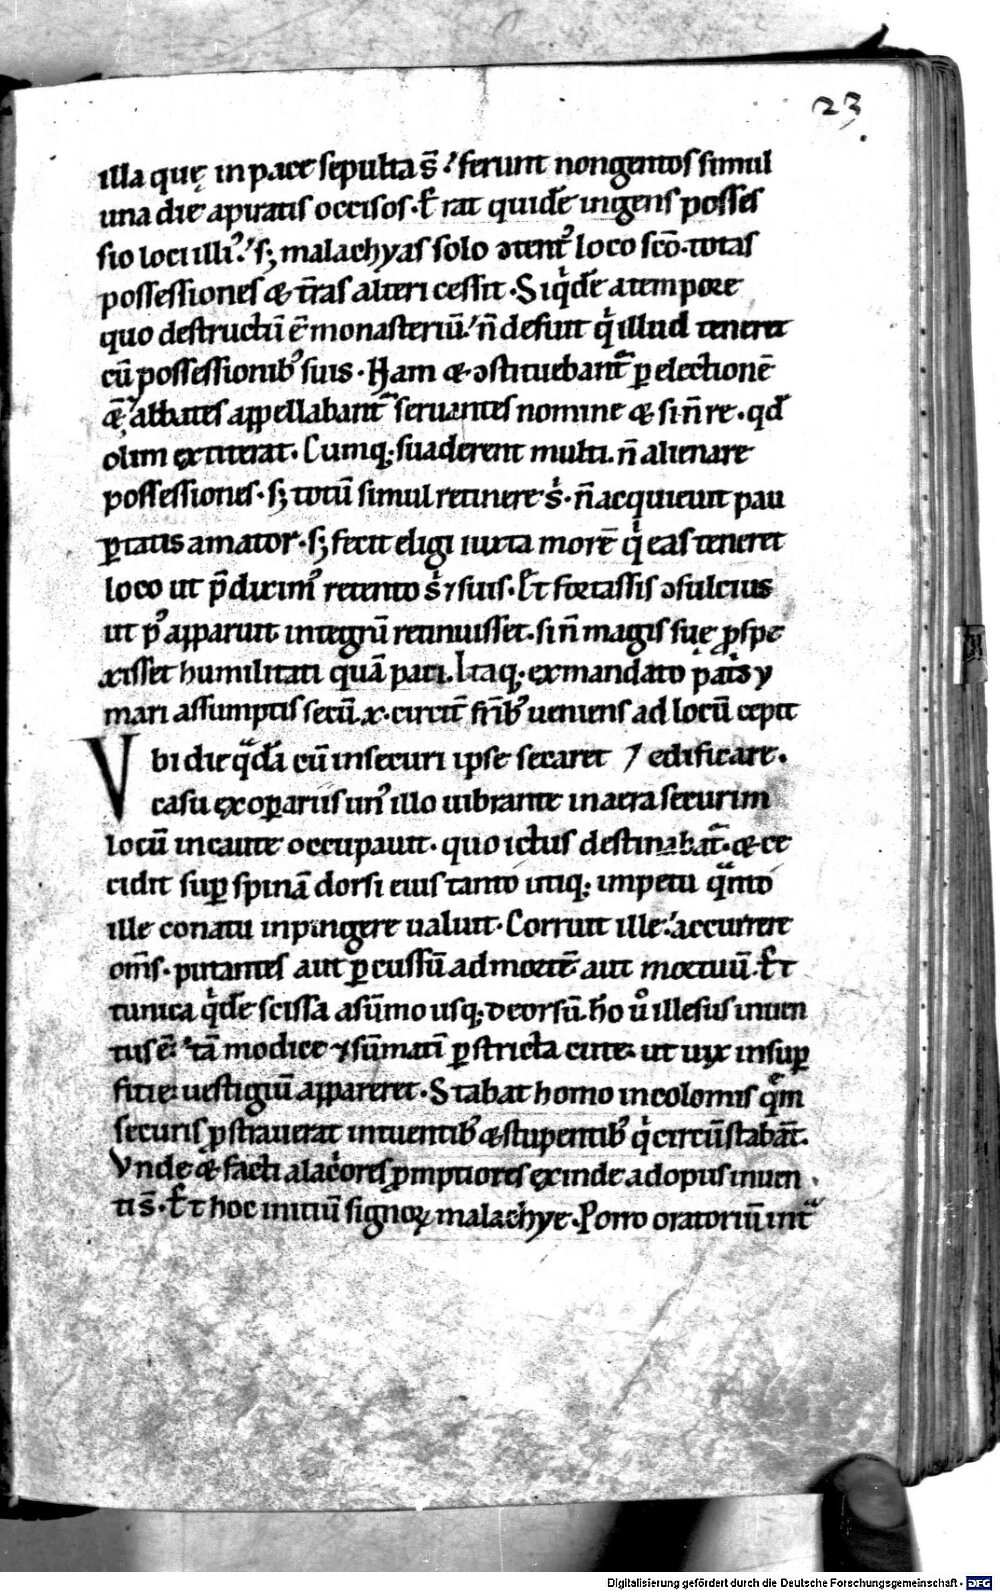 23
illa quę in pace sepulta s̄. ferunt nongentos simul
una die a piratis occisos. Erat quidē ingens posses
sio loci illiꝰ. sꝫ malachyas solo ↄtentꝰ loco sc̄o. totas
possessiones & t̄ras alteri cessit. Siqͥdē a tempore
quo destructū ē monasteriū. n̄ defuit qͥ illud teneret
cū possessionibꝰ suis. Nam & ↄstituebant᷑ ꝑ electionē
&̄ abbates appellabant᷑ seruantes nomine & si n̄ re. qđ
olim extiterat. Cumqꝫ suaderent multi. n̄ alienare
possessiones. sꝫ totū simul retinere sͥ. n̄ acquieuit pau
ꝑtatis amator. sꝫ fecit eligi iuxta morē qͥ eas teneret
loco ut p̄diximꝰ retento sͥ ⁊ suis. Et fortassis ↄsulcius
ut pꝰ apparuit. integrū retinuisset. si n̄ magis suę ꝓspe
xisset humilitati quā paci. Itaqꝫ ex mandato pat̄s y
mari assumptis secū. x. circit᷑ fr̄ibꝰ ueniens ad locū cepit
Vbi die qͣdā cū in securi ipse secaret ⁊ edificare.
casu ex oꝑariis unꝰ illo uibrante in aera securim
locū incaute occupauit. quo ictus destinabat᷑. & ce
cidit suꝑ spinā dorsi eius tanto utiqꝫ impetu qͣnto
ille conatu inpingere ualuit. Corruit ille. accurrere
om̄s. putantes aut ꝑcussū ad mortē aut mortuū. Et
tunica qͥdē scissa a sūmo usqꝫ deorsū. hō uͦ illesus inuen
tus ē. tā modice ⁊ sūmatī ꝑstricta cute. ut uix in suꝑ
ficie uestigiū appareret. Stabat homo incolomis qͤm
securis ꝓstrauerat intuentibꝰ & stupentibꝰ qͥ circūstabāt.
Vnde & facti alacͥores ꝓmptiores exinde ad opus inuen
ti s̄. Et hoc initiū signoꝝ malachye. Porro oratoriū int᷑
Digitalisierung gefördert durch die Deutsche Forschungsgemeinschaft - DFG